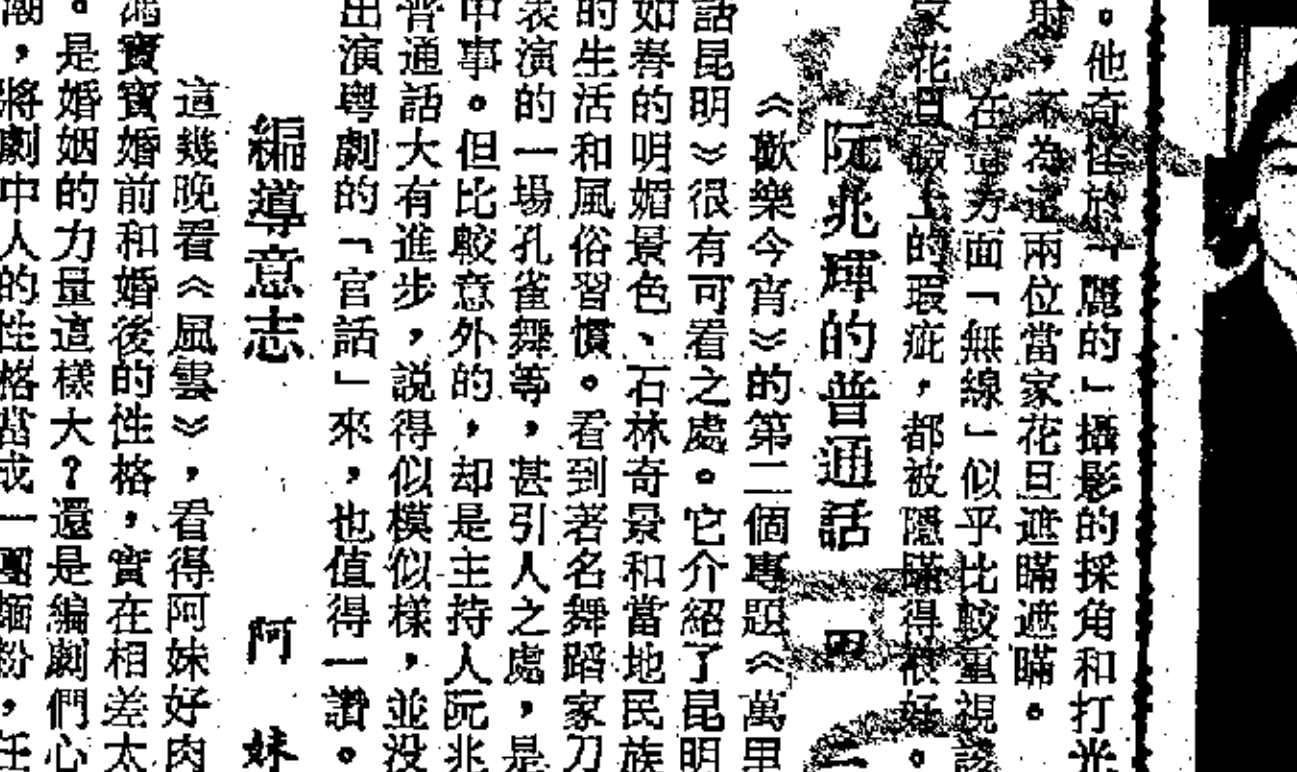 。他奇怪於「麗的」攝影的採角和打光
射,不為這兩位當家花旦遮瞞遮瞞。
在這方面「無線」似乎比較重視該
家花旦臉上的瑕疵,都被隱瞞得很好。
阮兆輝的普通話
《歡樂今宵》的第二個專題《萬里
話昆明》很有可看之處。它介紹了昆明
如春的明媚景色、石林奇景和當地民族
的生活和風俗習慣。看到著名舞蹈家刀
表演的一場孔雀舞等,甚引人之處,是
中事。但比較意外的,却是主持人阮兆
普通話大有進步,説得似模似樣,並没
出演粵劇的「官話」來,也值得一讚。
編導意志 阿妹
這幾晚看《風雲》,看得阿妹好肉
寶寶婚前和婚後的性格,實在相差太
。是婚姻的力量這樣大?還是編劇們心
潮,將劇中人的性格當成一團麵粉,任